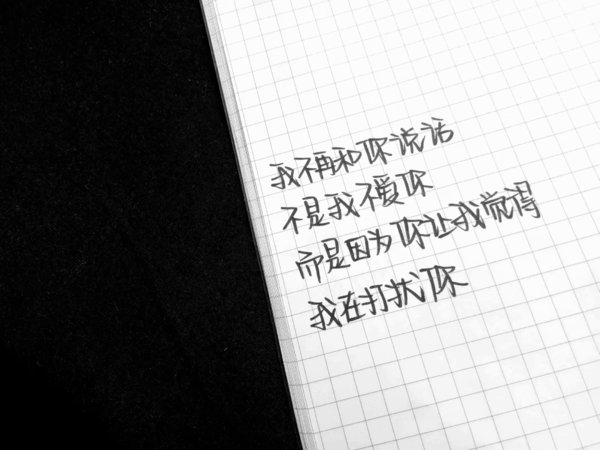 我不再和你说话
不是我不爱你
而是因为你让我觉得
我在打扰你